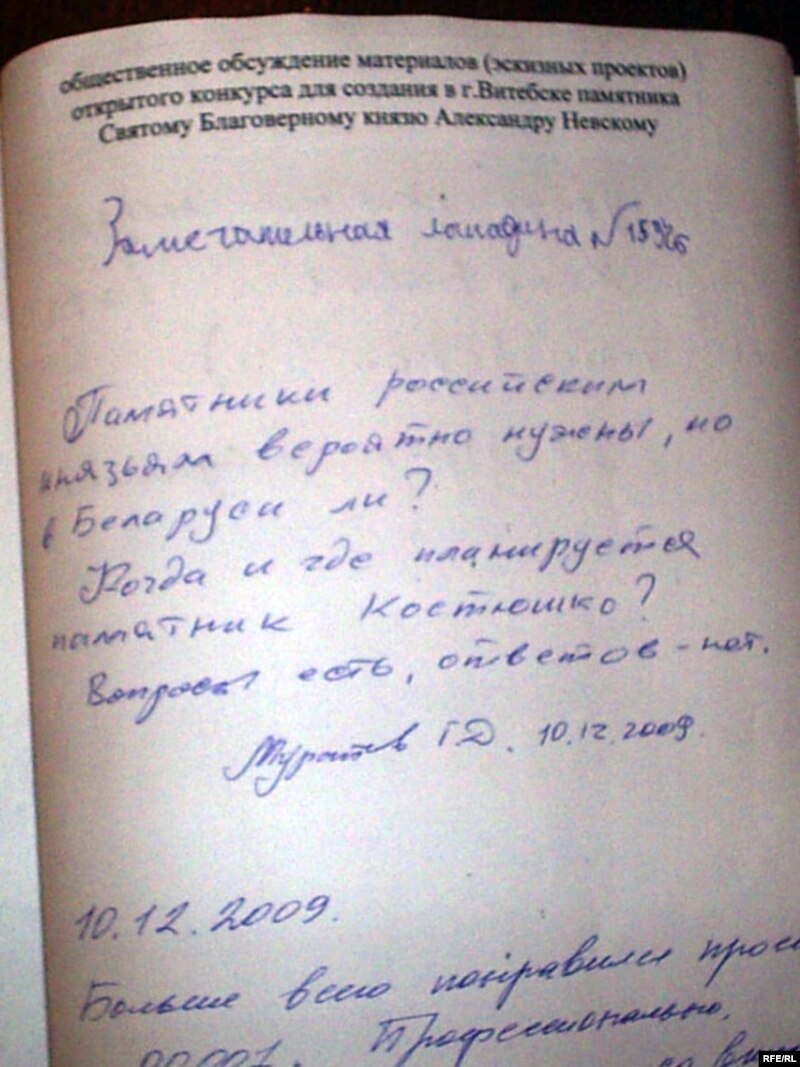 общественное обсуждение материалов (эскизных проектов)
открытого конкурса для создания в г.Витебске памятника
Святому Благоверному князю Александру Невскому
Замечательная лошадина №
Памятники российским
князьям вероятно нужны, но
в Беларуси ли?
Когда и где планируется
памятник Костюшко?
Вопросы есть, ответов - нет.
Муратов Г Д. 10.12.2009.
10.12.2009.
Больше всего понравился
Профессионально.
RFE/RL